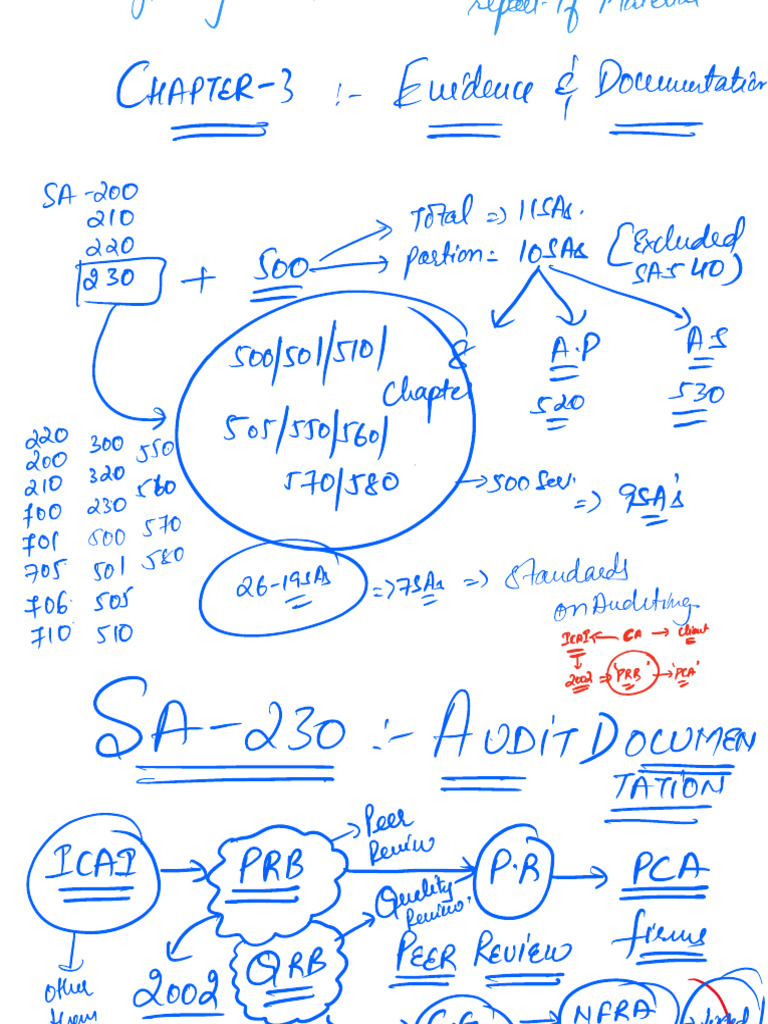 report of Material
CHAPTER-3 :- Evidence & Documentation
SA-200
210
220
230 + 500
Total => 11SAs.
portion = 10SAs (Excluded SA540)
500/501/510/ &
Chapter
505/550/560/
570/580
A.P
520
A S
530
→500 Seri. => 9SA's
220 300 550
200 320 560
210 230 570
700 500 580
701 501
705 505
706 510
710
26-19SAs => 7SAs => Standards
on Auditing
ICAI ← CA → Client
2002 => "PRB" → "PCA"
SA-230 :- AUDIT DOCUMEN
TATION
ICAI → PRB → Peer
Review
P.R → PCA
firms
Quality
Review.
QRB
PEER REVIEW
2002
other
than
NFRA